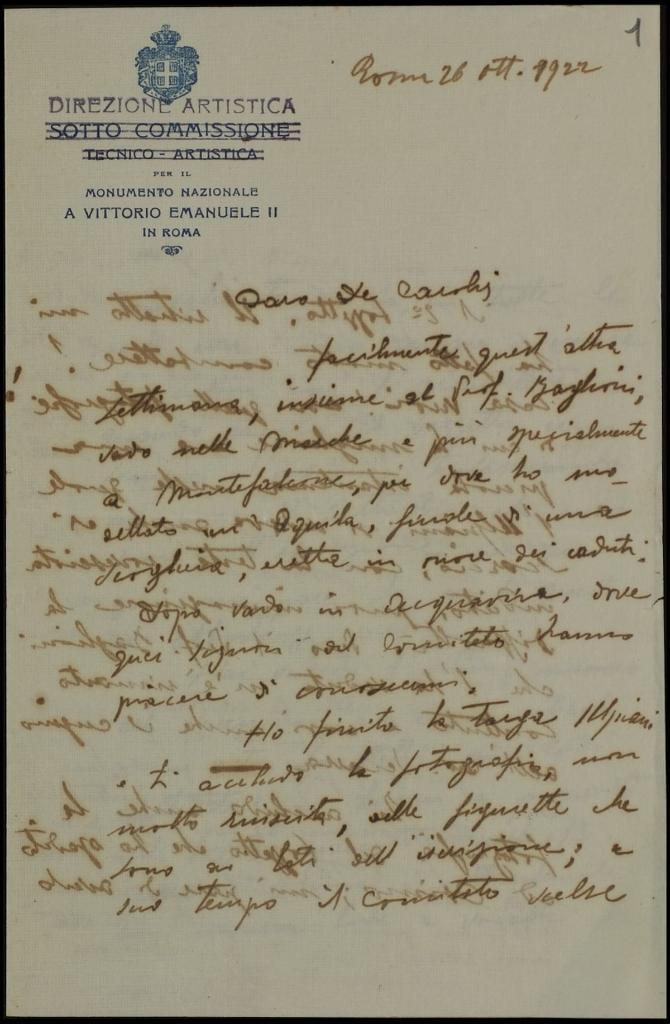 1
Roma 26 ott. 1922
DIREZIONE ARTISTICA
SOTTO COMMISSIONE
TECNICO - ARTISTICA
PER IL
MONUMENTO NAZIONALE
A VITTORIO EMANUELE II
IN ROMA
Caro De Carolis
facilmente quest'altra
settimana, insieme al Prof. Baglioni,
vado nelle Marche e più specialmente
a Montefalcone, per dove ho mo-
dellato un'Aquila, finale di una
Scogliera, eretta in onore dei caduti.
Dopo vado in Acquaviva, dove
quei Signori del Comitato hanno
piacere di conoscermi.
Ho finito la targa Ulpiani
e ti accludo la fotografia, non
molto riuscita, delle figurette che
sono ai lati dell'iscrizione; a
suo tempo il Comitato scelse